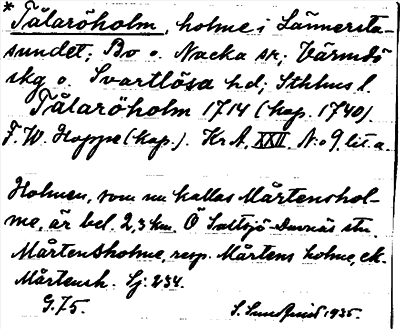 * Tälaröholm, holme i Lännersta-
sundet; Bo o. Nacka sr; Värmdö
skg o. Svartlösa hd; Sthlms l.
Tälaröholm 1714 (kop. 1740).
F. W. Hoppe (kop.). Kr A. XXII. N:o 9. lit. a.
Holmen, som nu kallas Mårtenshol-
me, är bel. 2,3 km. Ö Saltsjö-Duvnäs stn.
Mårtensholme, resp. Mårtens holme, ek.
Mårtensh. Sj: 234.
G. 75.
1935.